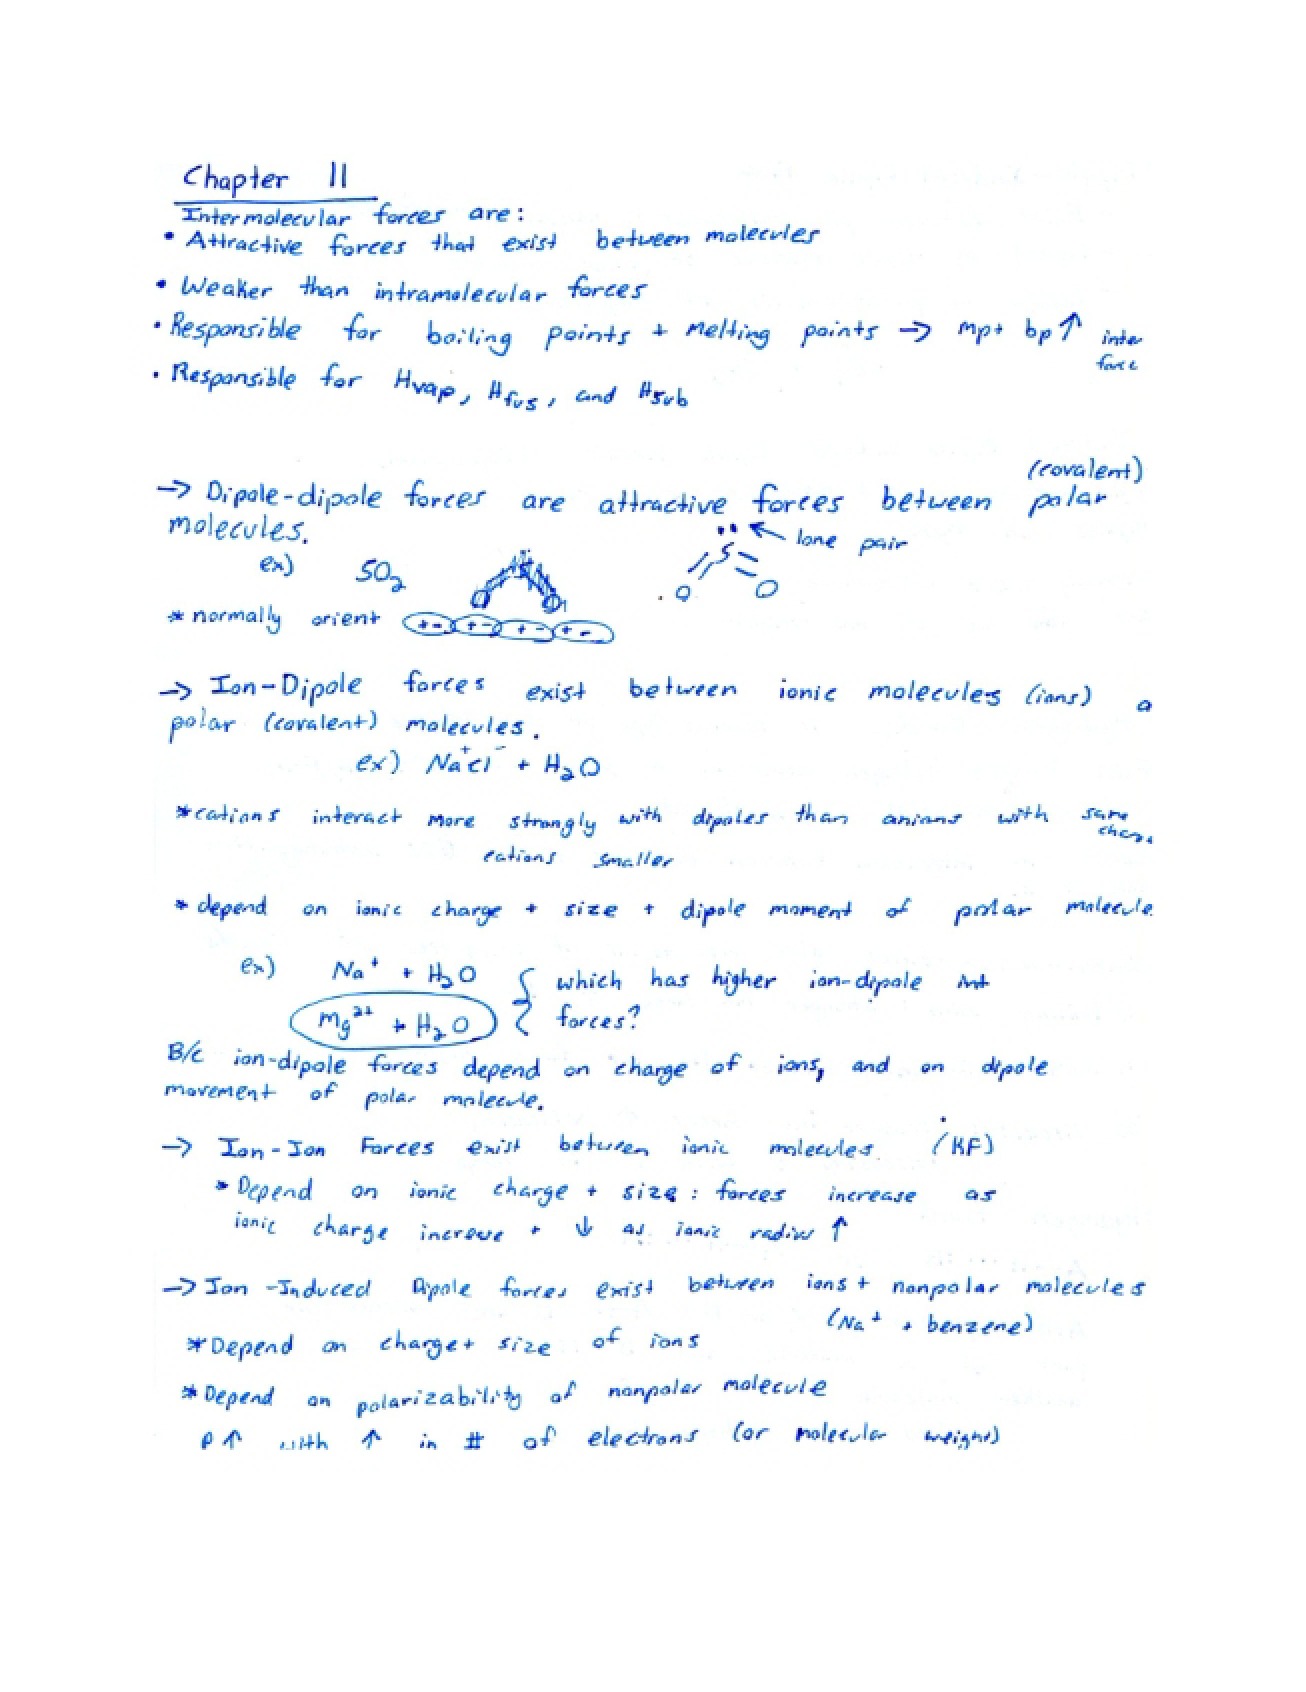 Chapter 11
Intermolecular forces are:
• Attractive forces that exist between molecules
• Weaker than intramolecular forces
• Responsible for boiling points + melting points → mp+ bp↑ inter
force
• Responsible for Hvap, Hfus, and Hsub
(covalent)
→ Dipole-dipole forces are attractive forces between polar
molecules.
lone pair
ex) SO₂
S
O O
* normally orient + - + - + - + -
→ Ion-Dipole forces exist between ionic molecules (ions) a
polar (covalent) molecules.
ex) Na⁺Cl⁻ + H₂O
*cations interact more strongly with dipoles than anions with same
cations smaller
* depend on ionic charge + size + dipole moment of polar molecule
ex) Na⁺ + H₂O { which has higher ion-dipole int
Mg²⁺ + H₂O forces?
B/c ion-dipole forces depend on charge of ions, and on dipole
movement of polar molecule.
→ Ion-Ion Forces exist between ionic molecules (KF)
* Depend on ionic charge + size : forces increase as
ionic charge increase + ↓ as ionic radius ↑
→ Ion-Induced Dipole forces exist between ions + nonpolar molecules
(Na⁺ + benzene)
*Depend on charge+ size of ions
*Depend on polarizability of nonpolar molecule
P↑ with ↑ in # of electrons (or molecular weight)